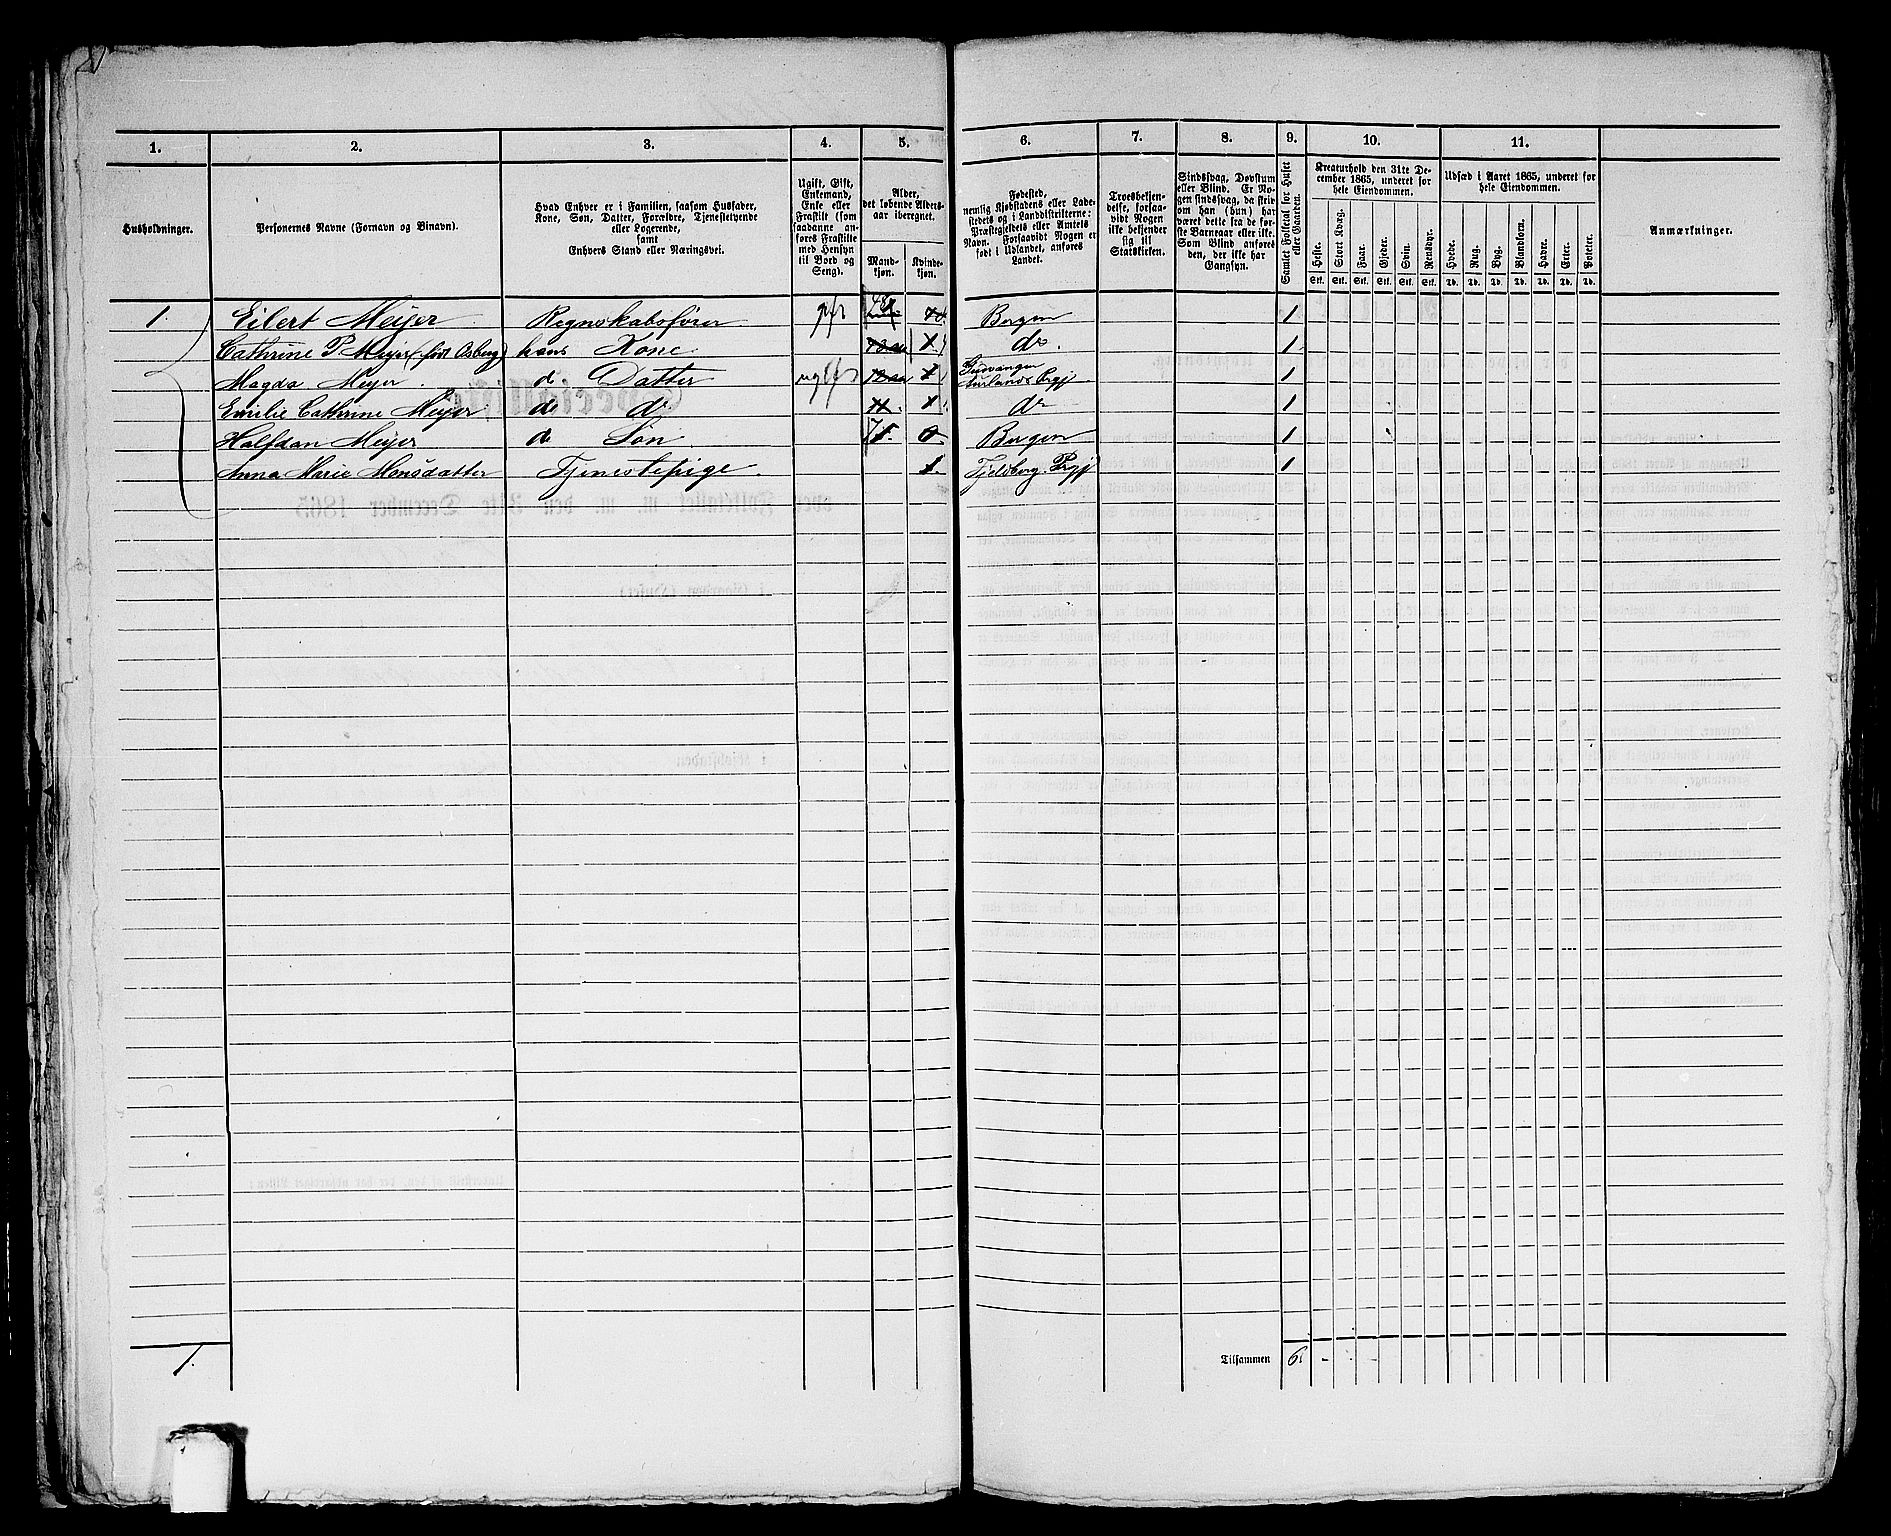 1. 2. 3. 4. 5. 6. 7. 8. 9. 10. 11.
Husholdninger.
Personernes Navne (Fornavn og Binavn).
Hvad Enhver er i Familien, saasom Husfader,
Kone, Søn, Datter, Forældre, Tjenestetyende
eller Logerende,
samt
Enhvers Stand eller Næringsvei.
Ugift, Gift,
Enkemand,
Enke eller
Fraskilt (som
saadanne an-
føres Fraskilte
med Hensyn
til Bord og
Seng).
Alder,
det løbende Alders-
aar iberegnet.
Mand-
kjøn.
Kvinde-
kjøn.
Fødested,
nemlig Kjøbstadens eller Lade-
stedets og i Landdistrikterne:
Præstegjeldets eller Amtets
Navn. Forsaavidt Nogen er
født i Udlandet, anføres
Landet.
Troesbekjen-
delse, forsaa-
vidt Nogen
ikke bekjender
sig til
Statskirken.
Sindssvag, Døvstum
eller Blind. Er No-
gen sindssvag, da skriv
om han (hun) har
været dette fra de før-
ste Barneaar eller ikke.
Som Blind anføres
den, der ikke har
Gangsyn.
Samlet Folketal for Huset
eller Gaarden.
Kreaturhold den 31te De-
cember 1865, underet for
hele Eiendommen.
Heste. Stort Kvæg. Faar. Gjeder. Svin. Rensdyr.
Stk. Stk. Stk. Stk. Stk. Stk.
Udsæd i Aaret 1865, underet for
hele Eiendommen.
Hvede. Rug. Byg. Blandkorn. Havre. Erter. Poteter.
Td. Td. Td. Td. Td. Td. Td.
Anmærkninger.
1. Eilert Meijer Regnskabsfører gift 48 Bergen 1
Cathrine P. Meijer (født Asberg) hans Kone do. 1
Magda Meijer. do Datter ugift Gudvangen Aurlands Prgj 1
Emilie Cathrine Meijer do do do 1
Halfdan Meijer do Søn Bergen 1
Anna Marie Monsdatter Tjenestepige. Fjeldberg Prgj 1
1. Tilsammen 6